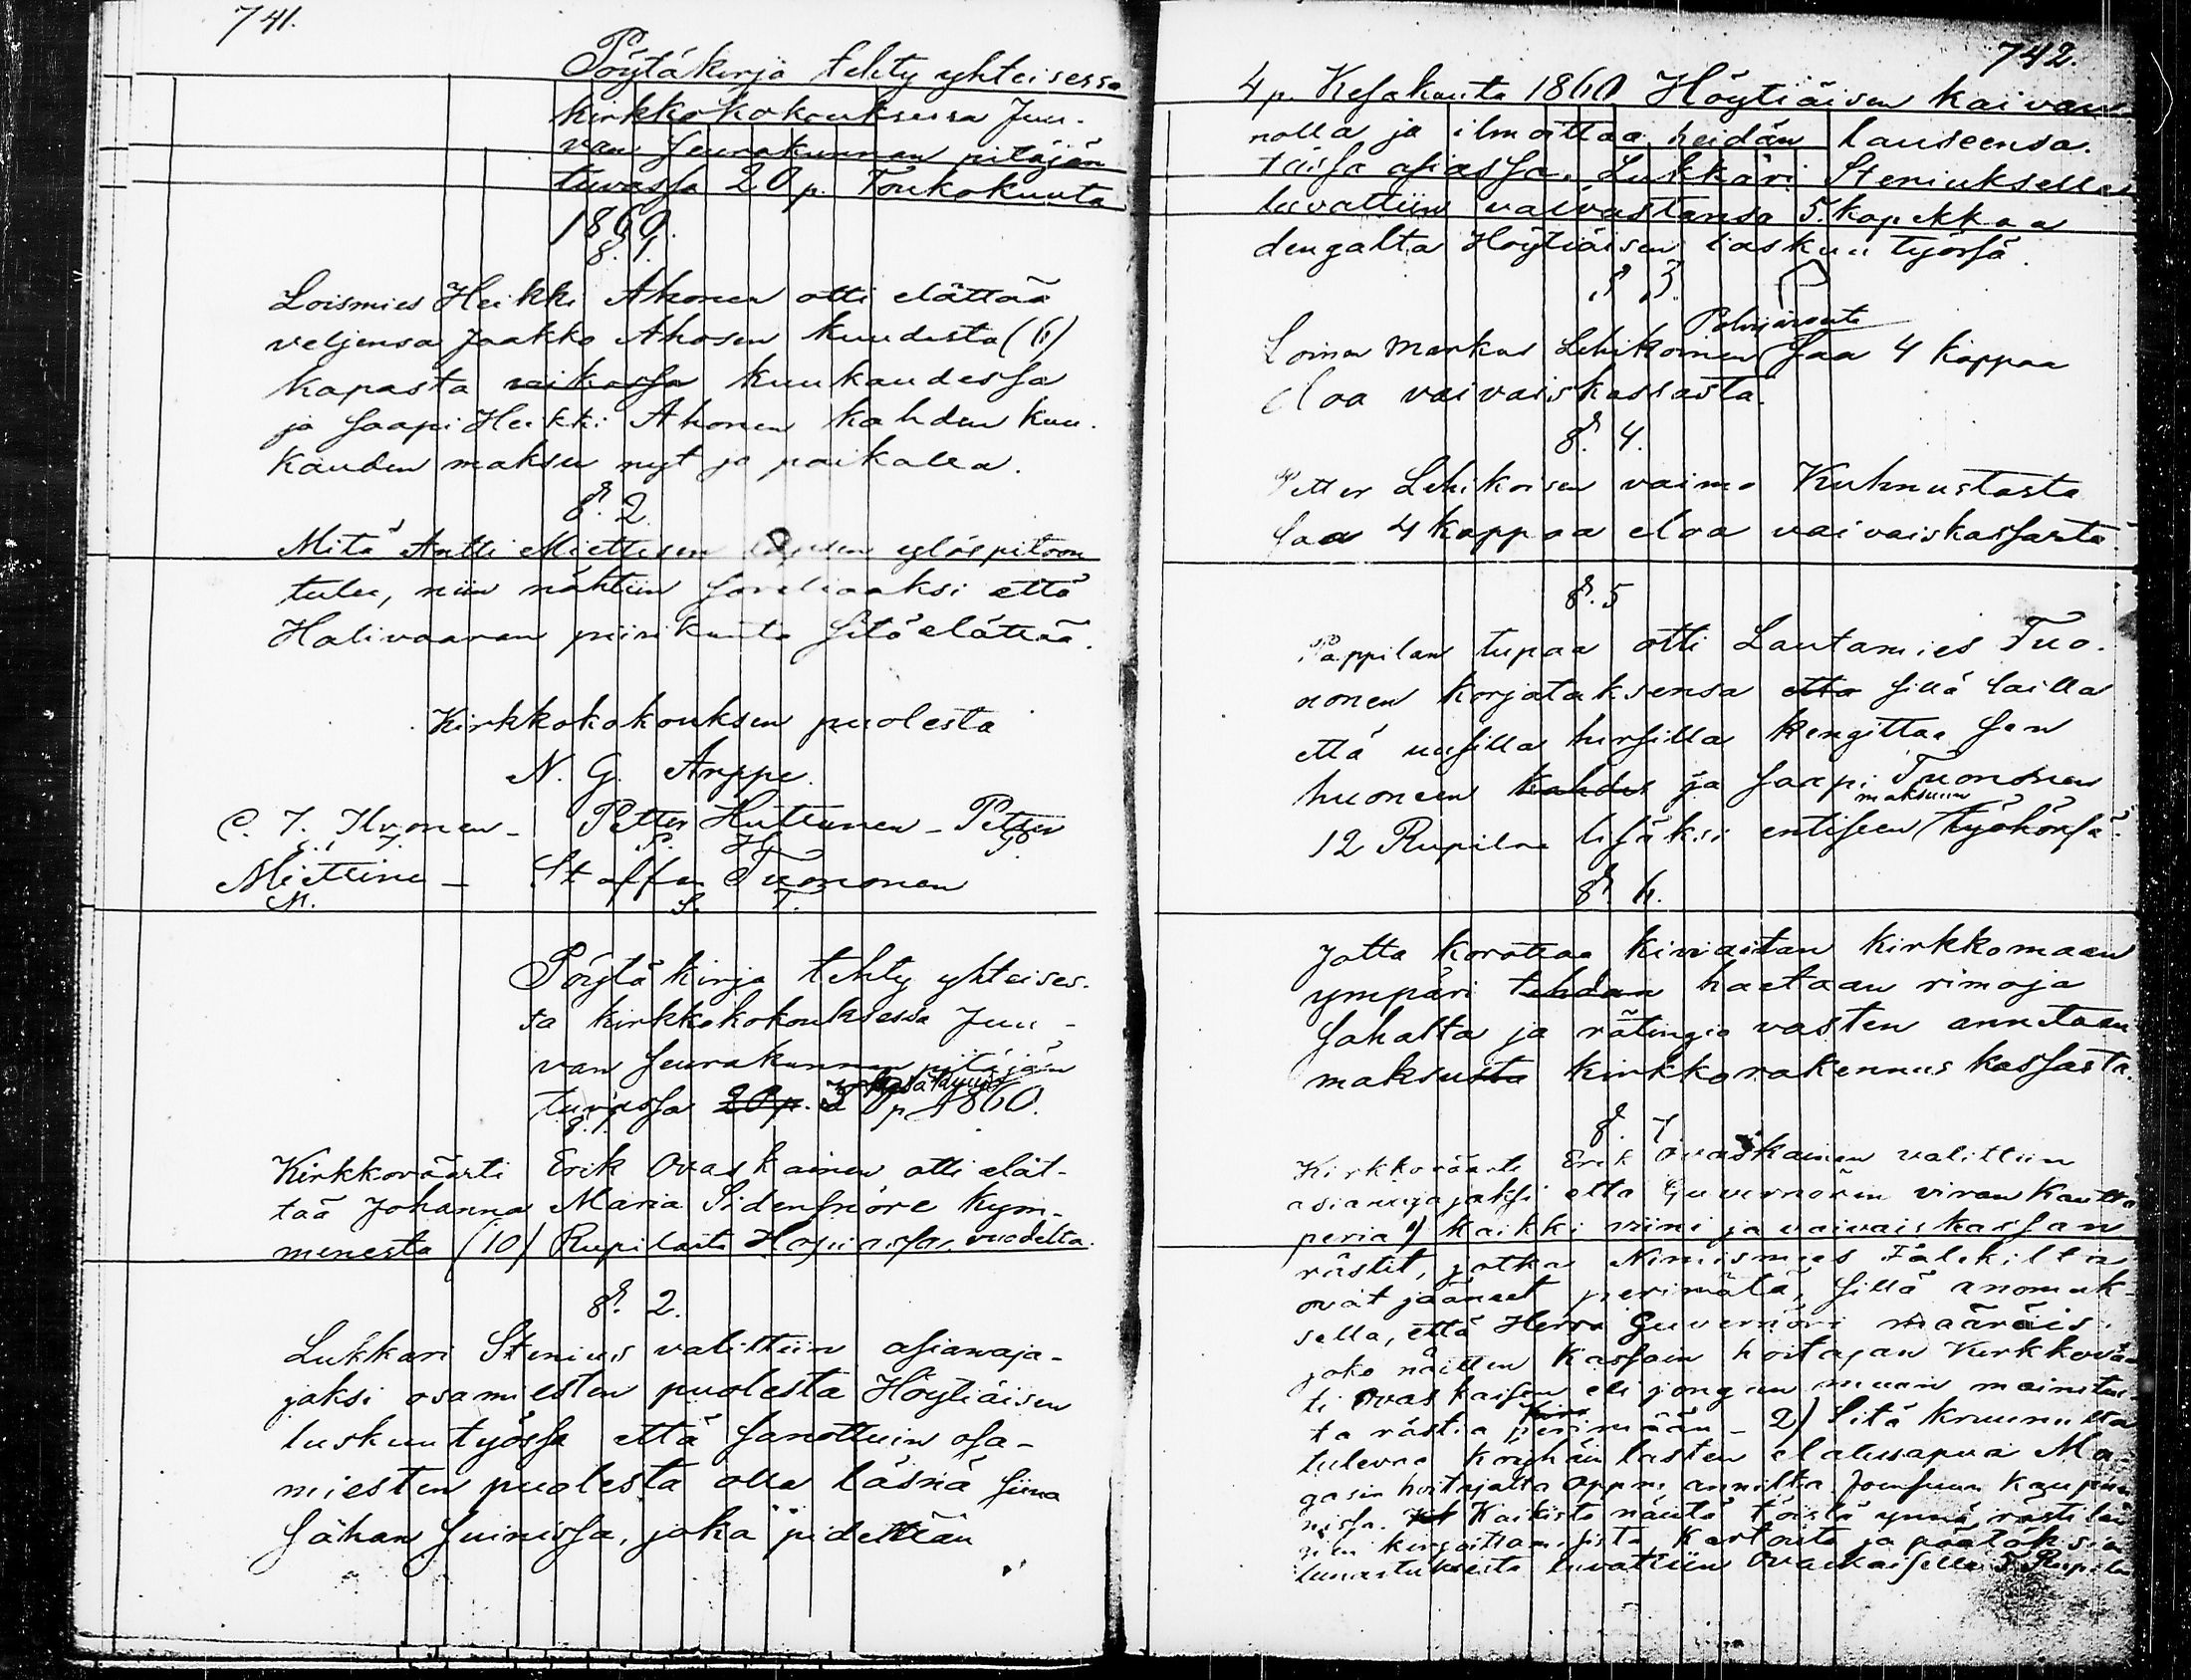 741.
Pöytäkirja tehty yhteisessa
kirkkokokouksessa Juu-
van seurakunnan pitäjän
tuvassa 20 p. Toukokuuta
1860.
§. 1.
Loismies Heikki Ahonen otti elättää
veljensa Jaakko Ahosen kuudesta (6)
kapasta kuukaudessa
ja saapi Heikki Ahonen kahden kuu-
kauden maksu nyt jo paikalla.
§. 2.
Mitä Antti Miettisen lapsen ylöspitoon
tulee, niin nähtiin soveliaaksi että
Halivaaran piirikunta sitä elättää.
Kirkkokokouksen puolesta
N. G. Arppe.
C. J. Ilvonen - Petter Huttunen - Petter
P. H. P.
Miettine - Staffan Tuononen
M. S. T.
Pöytäkirja tehty yhteises-
sa kirkkokokouksessa Juu-
van seurakunnan pitäjän
tuvassa 20 p. Kesäkuuta 1860.
§. 1.
Kirkkoväärti Erik Ovaskainen otti elät-
tää Johanna Maria Sidensnöre kym-
menestä (10) Ruplasta Hopiassa, vuodelta.
§. 2.
Lukkari Stenius valittiin asianaja-
jaksi osamiesten puolesta Höytiäisen
luskuutyössa että sanottuin osa-
miesten puolesta olla läsnä siina
Sähan suinissa, joka pidettään
742.
4 p. Kesakuuta 1860 Höytiäisen kaivan-
nolla ja ilmoittaa heidän lauseensa.
tässa asiassa. Lukkäri Steniuksella
luvattiin vaivastansa 5. kopekkaa
dengalta Höytiäisen laskuu työssä.
§ 3.
Polvijärveltä
Loinen Markus Lehikoinen saa 4 kappaa
eloa vaivaiskassasta.
§. 4.
Petter Lehikoisen vaimo Kuhnustasta
saa 4 kappaa eloa vaivaiskassasta
§. 5
Pappilan tupaa otti Lautamies Tuo-
nonen korjataksensa etta sillä lailla
että uusilla hirsilla kengittaa sen
huoneen kahden ja saapi Tuononen
maksuun
12 Ruplaa lisäksi entiseen työhönsä.
§. 6.
Jotta korottaa kiviaitan kirkkomaan
ympäri tehdan haetaan rimoja
Sahalta ja rätingiä vasten annetaan
maksusta kirkkorakennus kassasta.
§. 7.
Kirkkoväärti Erik Ovaskainen valittiin
asianajajaksi etta Guvernörin viran kautta
periä 1) kaikki viini ja vaivaiskassan
rästit, jotka Nimismies Fälckilta
ovat jääneet perimätä, sillä anomuk-
sella, että Herra Guvernöri määräis
joko näitten kassain hoitajan Kirkkovää-
ti Ovaskaisen eli jongun muun
ta rästia perimään - 2) Sitä kruunulta
tulevaa köyhäin lasten elatusapua Ma-
gasin hoitajalta Joensuun kaupun-
nissa. Kaikista näistä töistä ynnä rästilän
kirjoittamisista, Kartoista ja päätöksiä
lunastuksesta luvattiin Ovaskaisella 5 Ruplaa